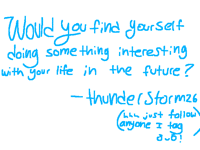 Would you find yourself
doing something interesting
with your life in the future?
—thunderstorm26
just follow
anyone I tag